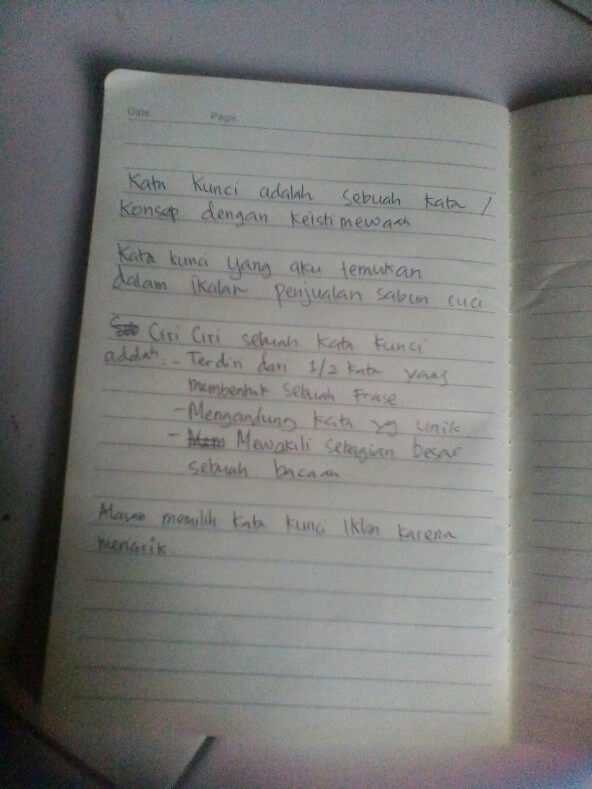 Date Page
Kata kunci adalah sebuah kata /
Konsep dengan keistimewaan
Kata kunci yang aku temukan
dalam ikalan penjualan sabun cuci
Ciri Ciri sebuah kata kunci
adalah: - Terdiri dari 1/2 kata yang
membentuk sebuah Frase
- Mengandung kata yg unik
- Mewakili sebagian besar
sebuah bacaan
Alasan memilih kata kunci Iklan karena
menarik.